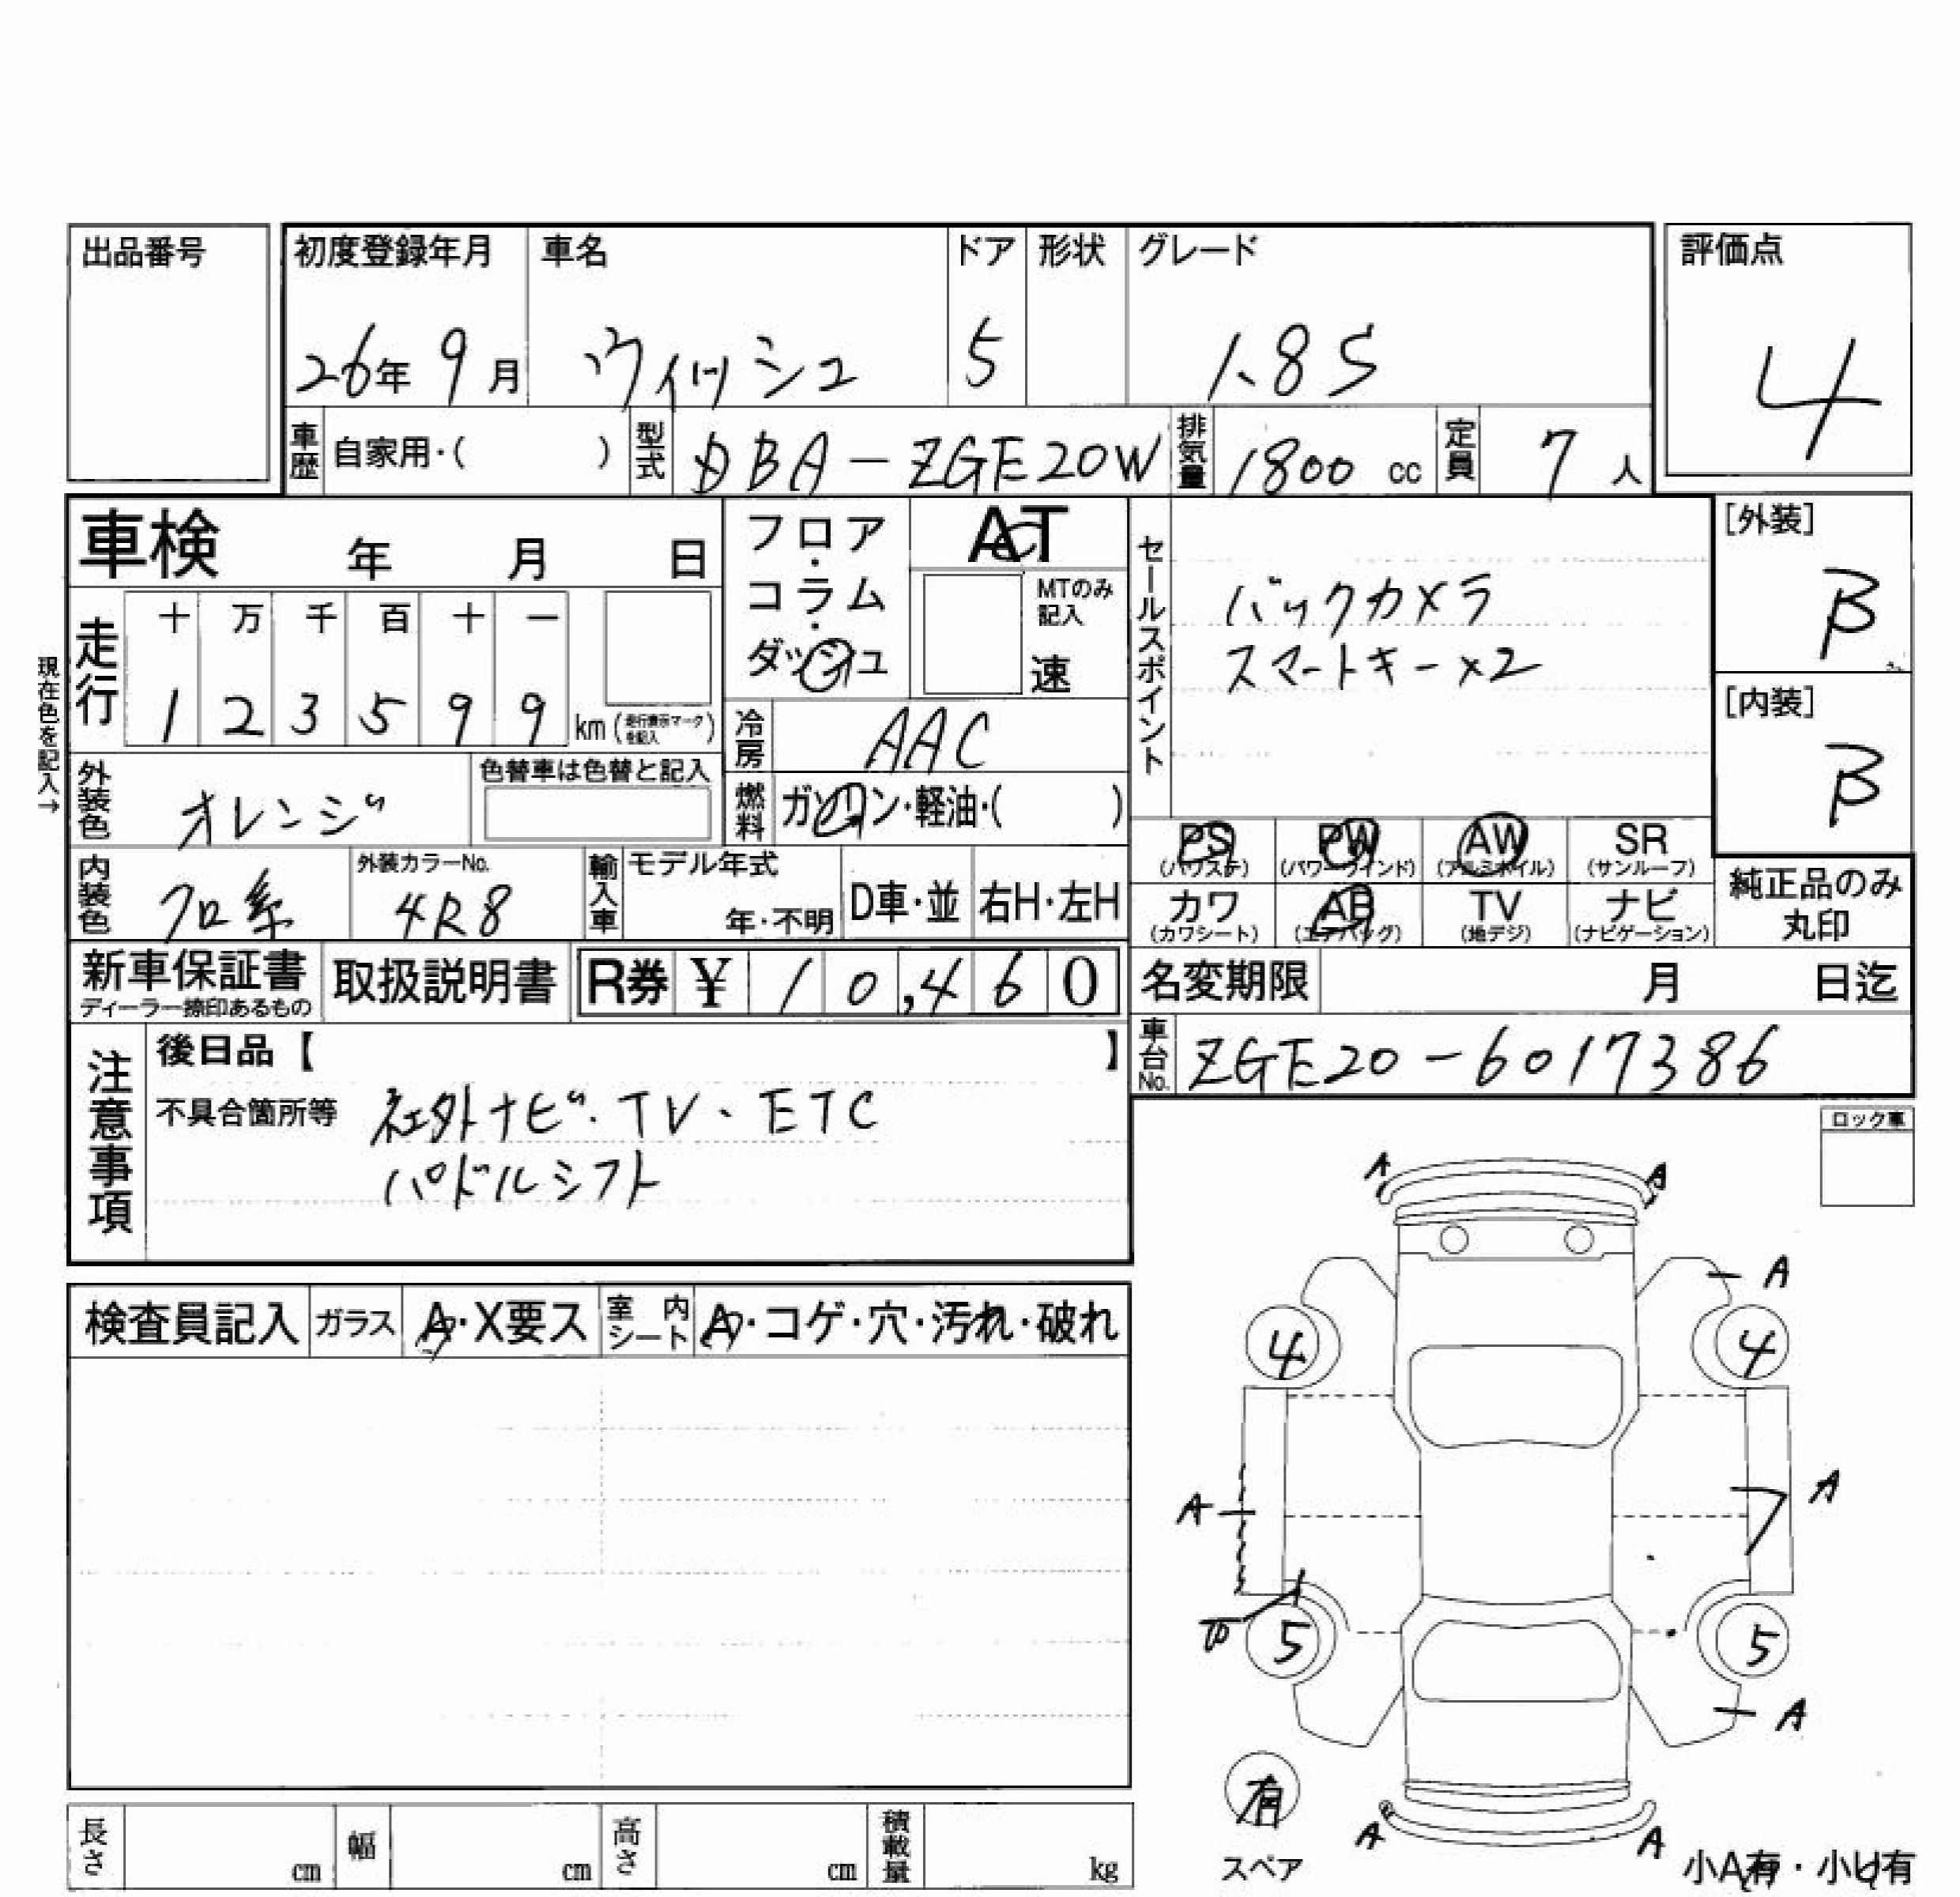 出品番号
初度登録年月 車名 ドア 形状 グレード 評価点
26年 9月 ウィッシュ 5 1.8S 4
車歴 自家用・( ) 型式 DBA-ZGE20W 排気量 1800 cc 定員 7 人
車検 年 月 日
フロア・コラム・ダッシュ
AT
MTのみ記入
速
セールスポイント
バックカメラ
スマートキー×2
[外装]
B
[内装]
B
現在色を記入→
走行 十 万 千 百 十 一
1 2 3 5 9 9 km (走行表示マークを記入)
冷房 AAC
外装色 オレンジ 色替車は色替と記入
燃料 ガソリン・軽油・( )
PS (パワステ) PW (パワーウインド) AW (アルミホイル) SR (サンルーフ)
カワ (カワシート) AB (エアバッグ) TV (地デジ) ナビ (ナビゲーション)
純正品のみ丸印
内装色 クロ系 外装カラーNo. 4R8 輸入車 モデル年式 年・不明 D車・並 右H・左H
新車保証書 ディーラー捺印あるもの 取扱説明書 R券 ¥ 10,460
名変期限 月 日迄
車台No. ZGE20-6017386
注意事項
後日品【 】
不具合箇所等 社外ナビ・TV・ETC
パドルシフト
ロック車
検査員記入 ガラス A・X要ス 室内シート A・コゲ・穴・汚れ・破れ
A A
A
4 4
A A
5 5
A
有
スペア
A A
小A有・小U有
長さ cm 幅 cm 高さ cm 積載量 kg